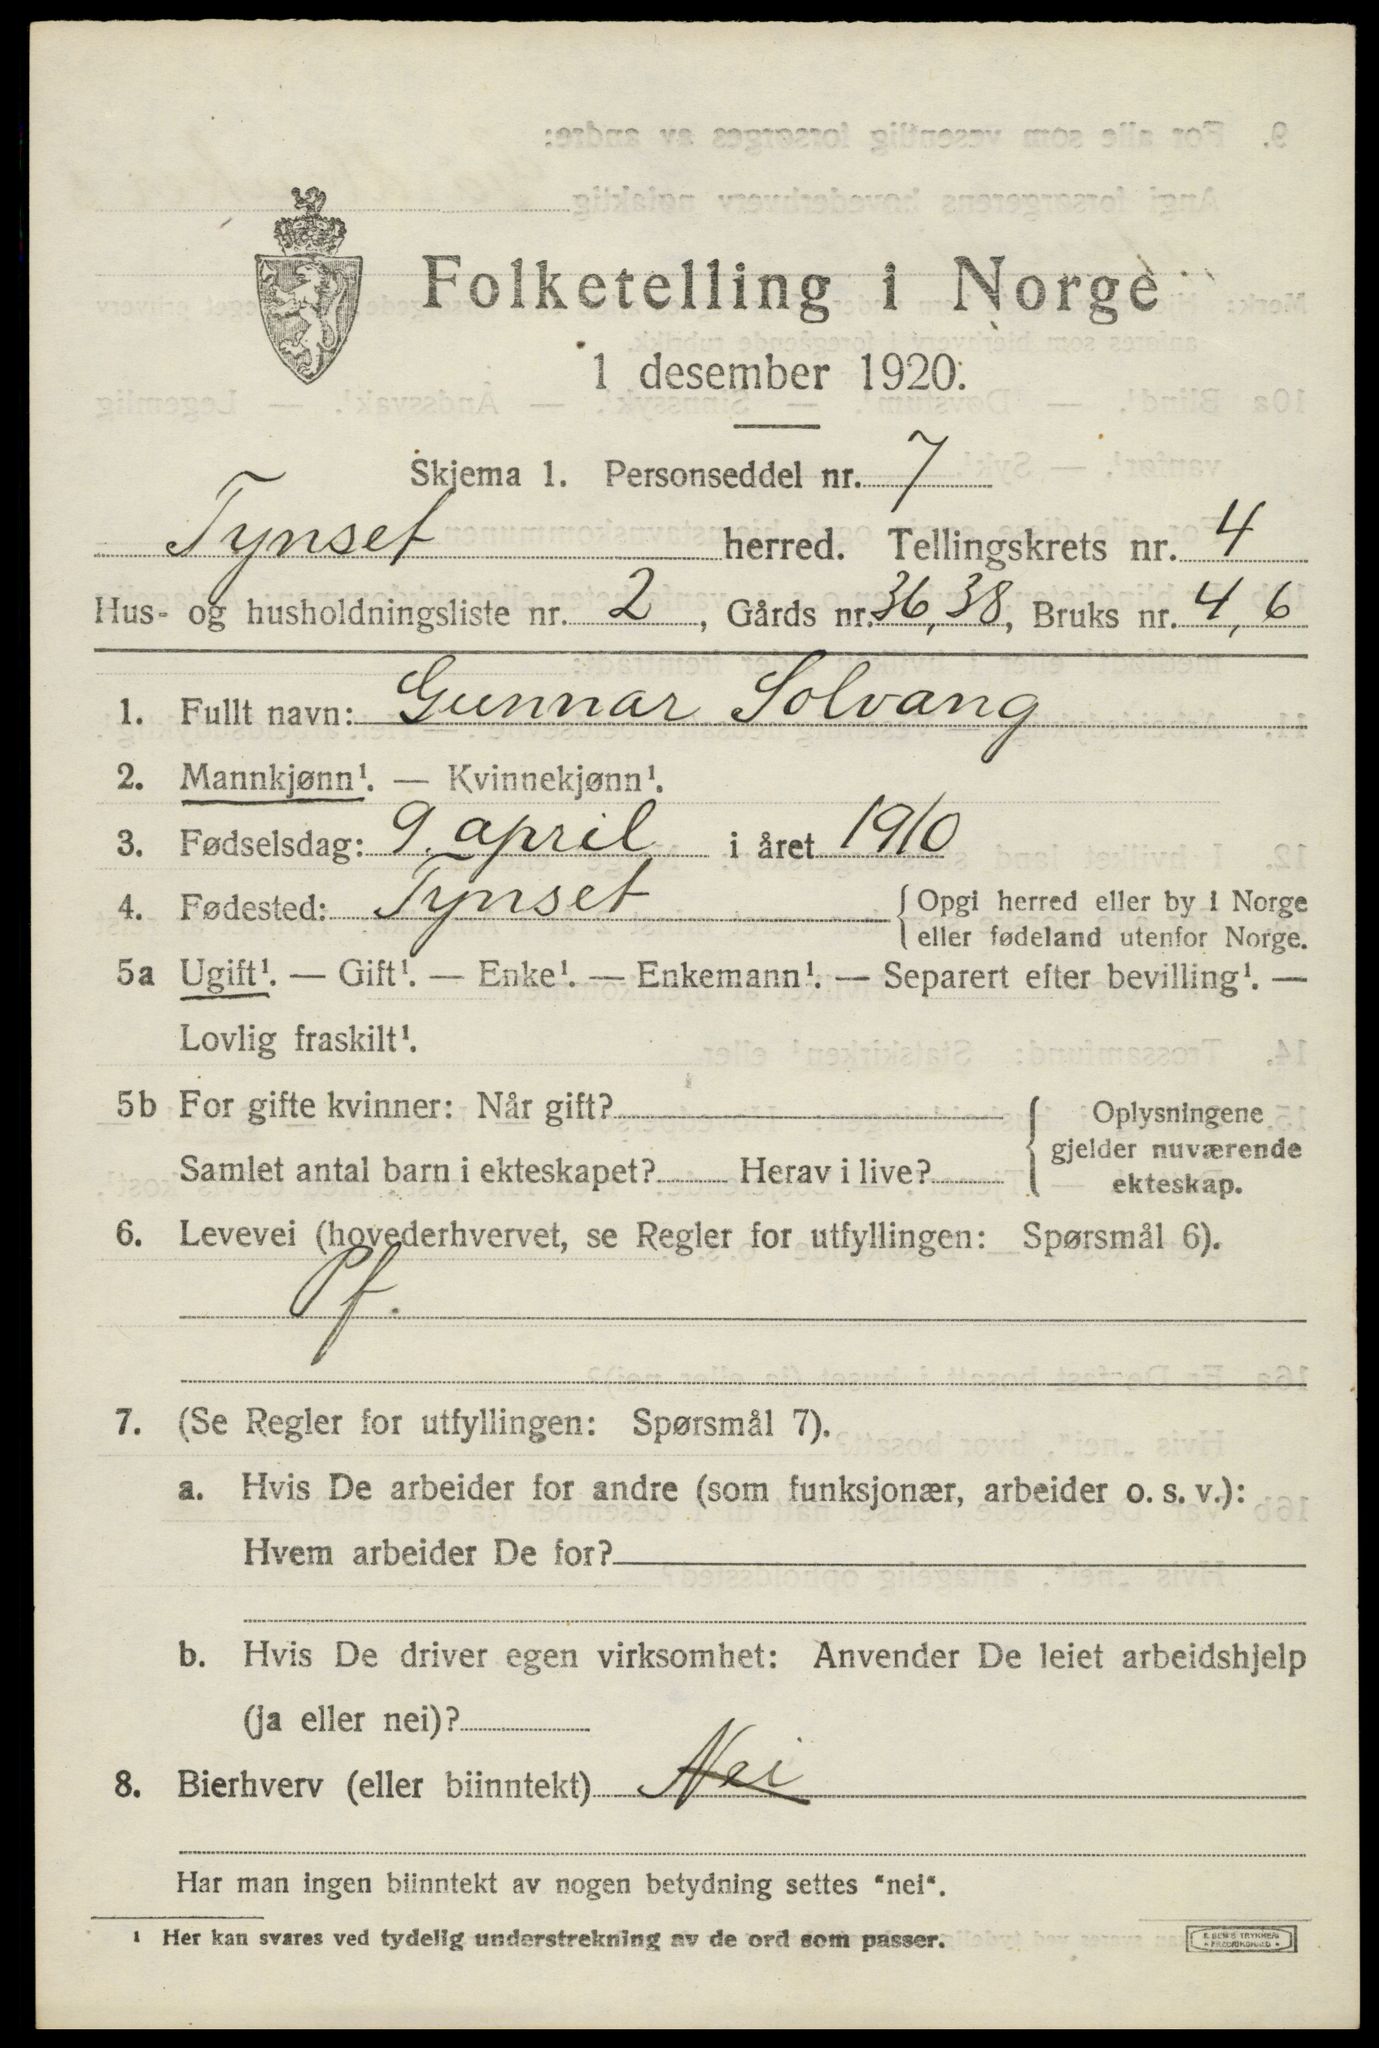 Folketelling i Norge
1 desember 1920.
Skjema 1. Personseddel nr. 7
Tynset herred. Tellingskrets nr. 4
Hus- og husholdningsliste nr. 2, Gårds nr. 36, 38, Bruks nr. 4, 6
1. Fullt navn: Gunnar Solvang
2. Mannkjønn¹. — Kvinnekjønn¹.
3. Fødselsdag: 9. april i året 1910
4. Fødested: Tynset { Opgi herred eller by i Norge
eller fødeland utenfor Norge.
5a Ugift¹. — Gift¹. — Enke¹. — Enkemann¹. — Separert efter bevilling¹. —
Lovlig fraskilt¹.
5b For gifte kvinner: Når gift? { Oplysningene
gjelder nuværende
Samlet antal barn i ekteskapet? Herav i live? ekteskap.
6. Levevei (hovederhvervet, se Regler for utfyllingen: Spørsmål 6).
Pf.
7. (Se Regler for utfyllingen: Spørsmål 7).
a. Hvis De arbeider for andre (som funksjonær, arbeider o. s. v.):
Hvem arbeider De for?
b. Hvis De driver egen virksomhet: Anvender De leiet arbeidshjelp
(ja eller nei)?
8. Bierhverv (eller biinntekt) Nei
Har man ingen biinntekt av nogen betydning settes "nei".
¹ Her kan svares ved tydelig understrekning av de ord som passer.